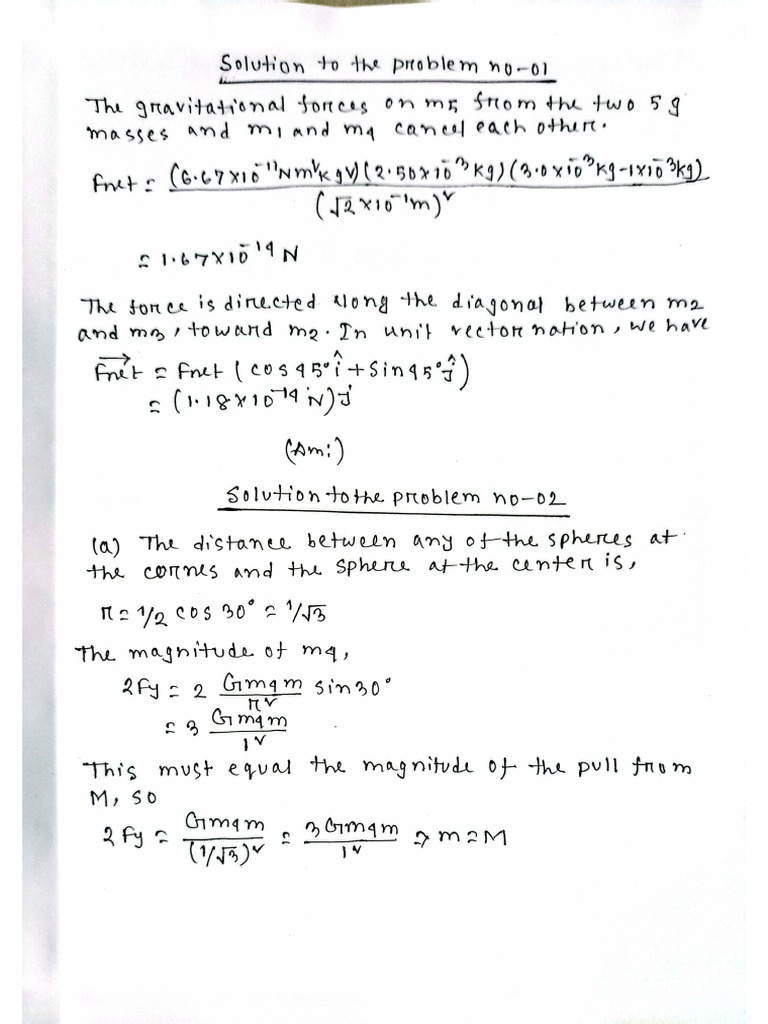 Solution to the problem no-01
The gravitational forces on m5 from the two 5 g
masses and m1 and m4 cancel each other.
Fnet = (6.67×10⁻¹¹Nm²kg²)(2.50×10⁻³kg)(3.0×10⁻³kg-1×10⁻³kg)
(√2×10⁻¹m)²
= 1.67×10⁻¹⁴ N
The force is directed along the diagonal between m2
and m3, toward m2. In unit vector nation, we have
Fnet = Fnet (cos45°î + Sin45°ĵ)
= (1.18×10⁻¹⁴ N)ĵ
(Am:)
Solution to the problem no-02
(a) The distance between any of the spheres at
the cornes and the sphere at the center is,
r = 1/2 cos 30° = 1/√3
The magnitude of m4,
2Fy = 2 Gm4m/r² sin30°
= 3 Gm4m/1²
This must equal the magnitude of the pull from
M, so
2Fy = Gm4m/(1/√3)² = 3Gm4m/1² ⇒ m=M